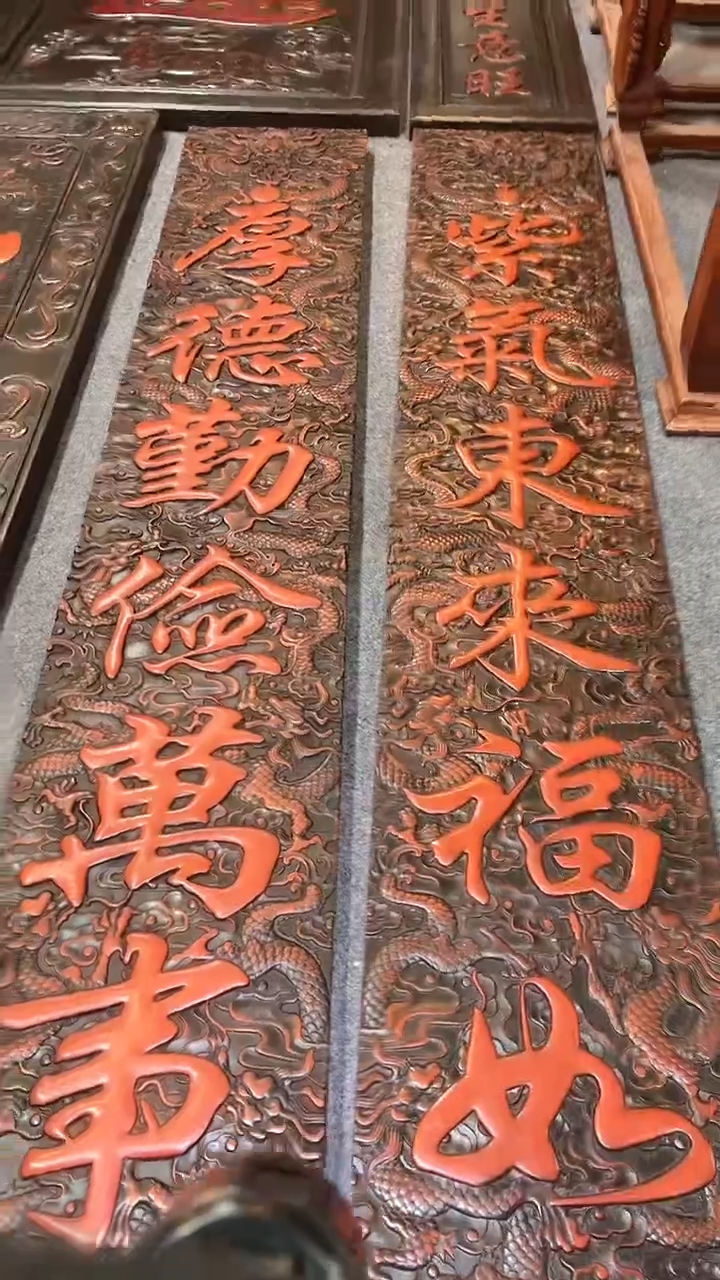 意旺
紫氣東來福如
厚德勤儉萬事